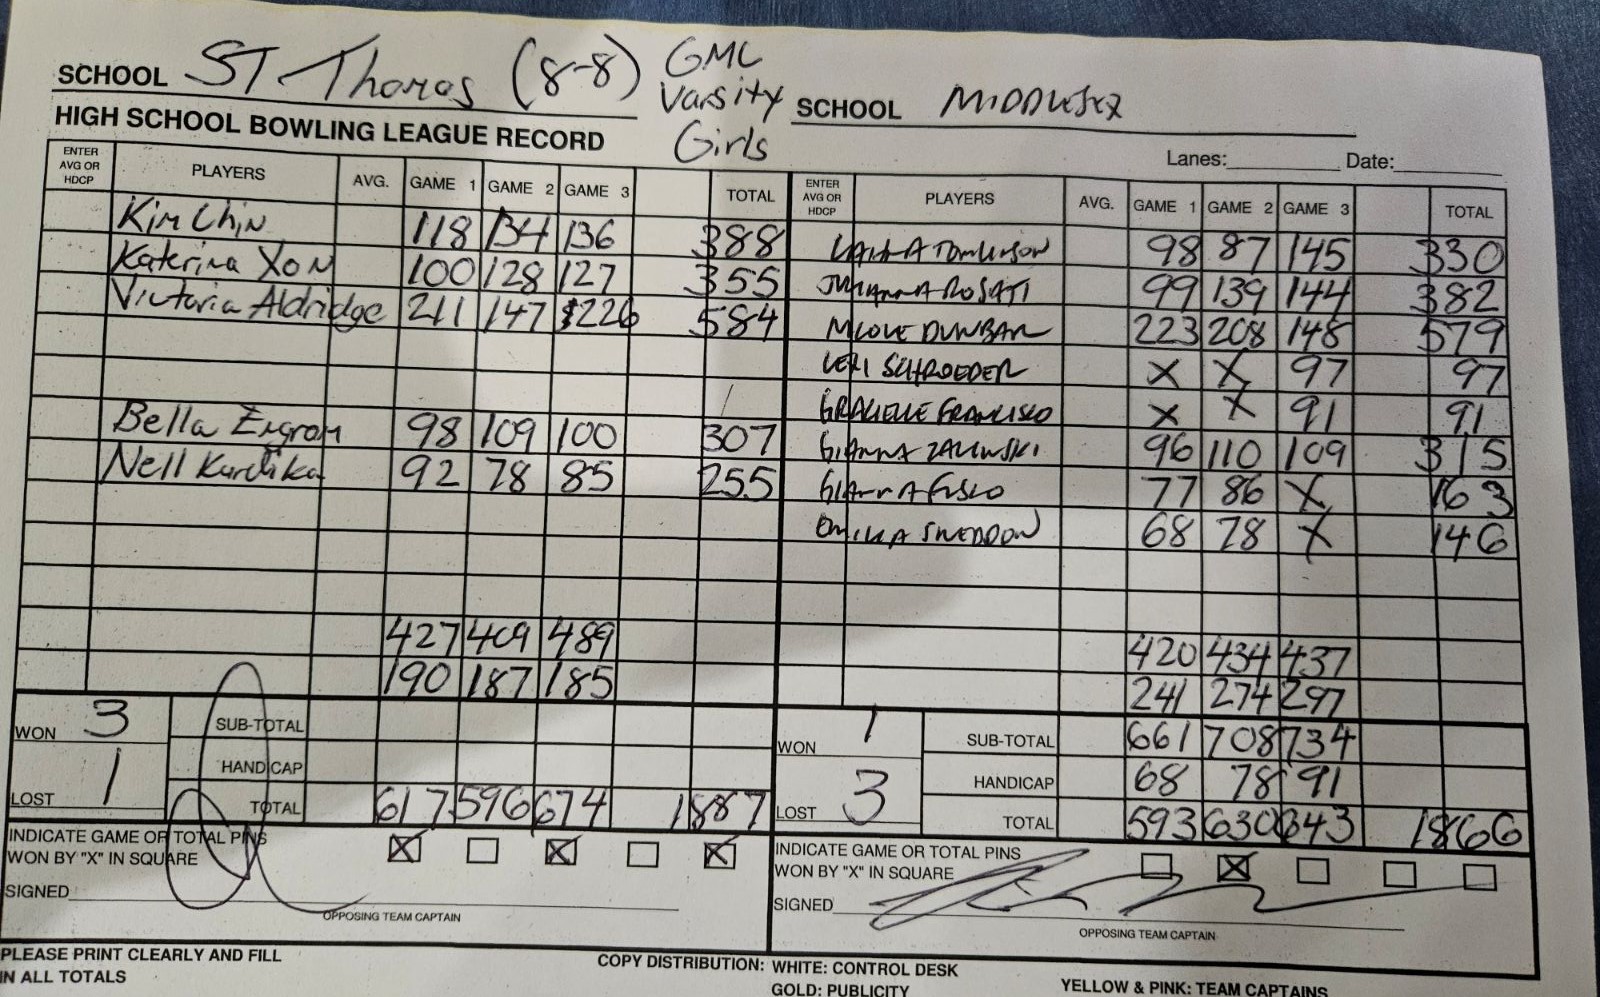 SCHOOL ST Thomas (8-8) GMC Varsity Girls SCHOOL MIDDLESEX
HIGH SCHOOL BOWLING LEAGUE RECORD
Lanes: Date:
ENTER AVG OR HDCP PLAYERS AVG. GAME 1 GAME 2 GAME 3 TOTAL ENTER AVG OR HDCP PLAYERS AVG. GAME 1 GAME 2 GAME 3 TOTAL
Kim Chin 118 134 136 388
Katerina Xon 100 128 127 355
Victoria Aldridge 211 147 226 584
Bella Engrom 98 109 100 307
Nell 92 78 85 255
427 409 489
190 187 185
WON 3 SUB-TOTAL
HANDICAP
LOST 1 TOTAL 617 596 674 1887
INDICATE GAME OR TOTAL PINS
WON BY "X" IN SQUARE X X X
SIGNED
OPPOSING TEAM CAPTAIN
TOMLINSON 98 87 145 330
JULIANNA ROSATI 99 139 144 382
NICOLE DUNBAR 223 208 148 579
LEXI SCHROEDER X X 97 97
GRACIELLE FRANCISCO X X 91 91
GIANNA ZALEWSKI 96 110 109 315
GIANNA FUSCO 77 86 X 163
EMILIA SNEDDON 68 78 X 146
420 434 437
241 274 297
WON 1 SUB-TOTAL 661 708 734
HANDICAP 68 78 91
LOST 3 TOTAL 593 630 643 1866
INDICATE GAME OR TOTAL PINS
WON BY "X" IN SQUARE X
SIGNED
OPPOSING TEAM CAPTAIN
PLEASE PRINT CLEARLY AND FILL
IN ALL TOTALS
COPY DISTRIBUTION: WHITE: CONTROL DESK
GOLD: PUBLICITY
YELLOW & PINK: TEAM CAPTAINS